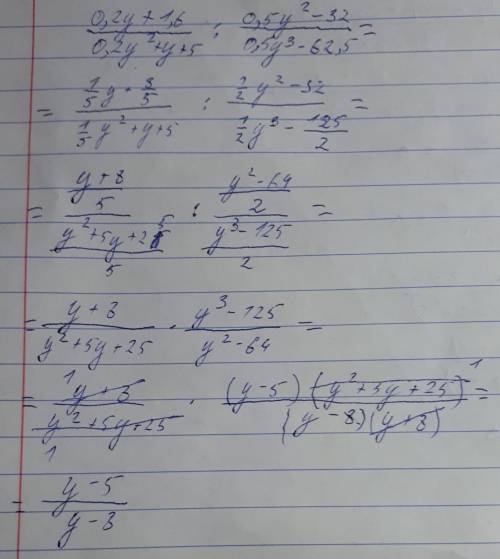 (0,2y + 1,6)/(0,2y² + y + 5) : (0,5y² - 32)/(0,5y³ - 62,5) =
= (1/5 y + 8/5)/(1/5 y² + y + 5) : (1/2 y² - 32)/(1/2 y³ - 125/2) =
= ((y + 8)/5)/((y² + 5y + 25)/5) : ((y² - 64)/2)/((y³ - 125)/2) =
= (y + 8)/(y² + 5y + 25) · (y³ - 125)/(y² - 64) =
= (y + 8)/(y² + 5y + 25) · (y - 5)(y² + 5y + 25)/(y - 8)(y + 8) =
= (y - 5)/(y - 8)